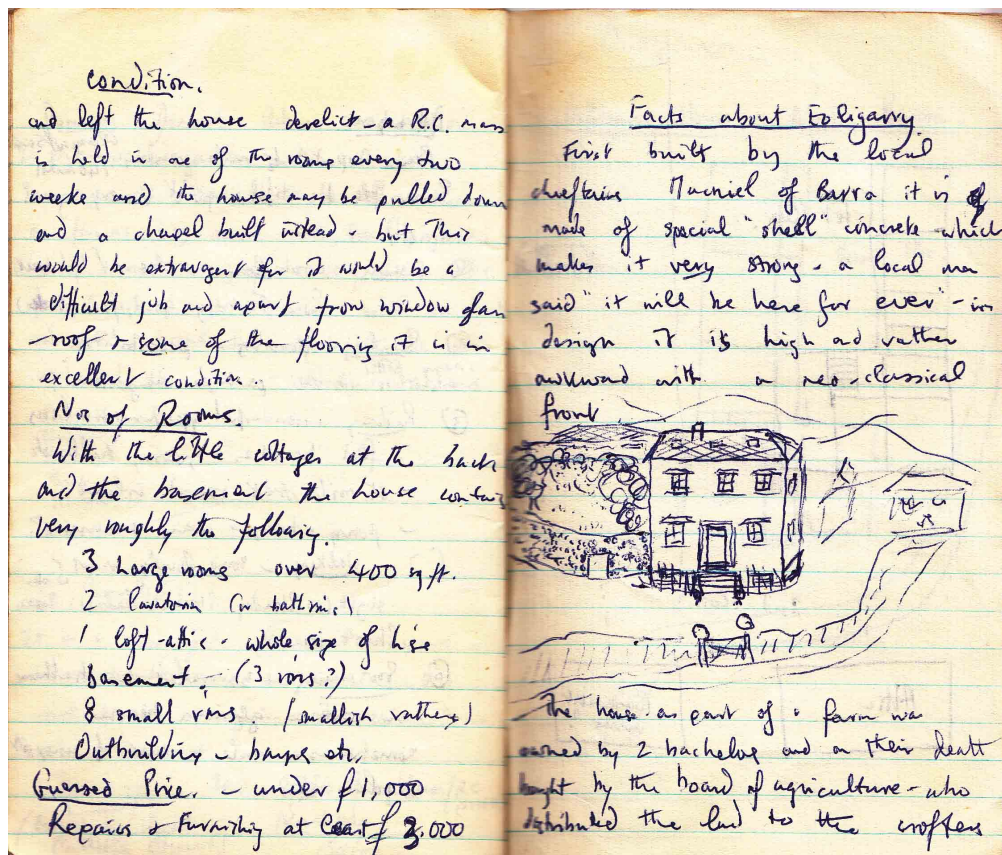 Condition.
and left the house derelict - a R.C. mass
is held in one of the rooms every two
weeks and the house may be pulled down
and a chapel built instead - but this
would be extravagent for it would be a
difficult job and apart from window glass
roof & some of the flooring it is in
excellent condition.
Nos of Rooms.
With the little cottages at the back
and the basement the house contains
very roughly the following.
3 Large rooms over 400 sq ft.
2 lavatories (no bathrms)
1 loft-attic - whole size of hse
basement - (3 rms?)
8 small rms. (smallish rathers)
Outbuilding - barns etc.
Guessed Price. - under £1,000
Repairs & Furnishing at least £3,000
Facts about Eoligarry
First built by the local
chieftains Macniel of Barra it is
made of special "shell" concrete which
makes it very strong - a local man
said "it will be here for ever" - in
design it is high and rather
awkward with a neo-classical
front
The house as part of a farm was
owned by 2 bachelors and on their death
bought by the board of agriculture - who
distributed the land to the crofters